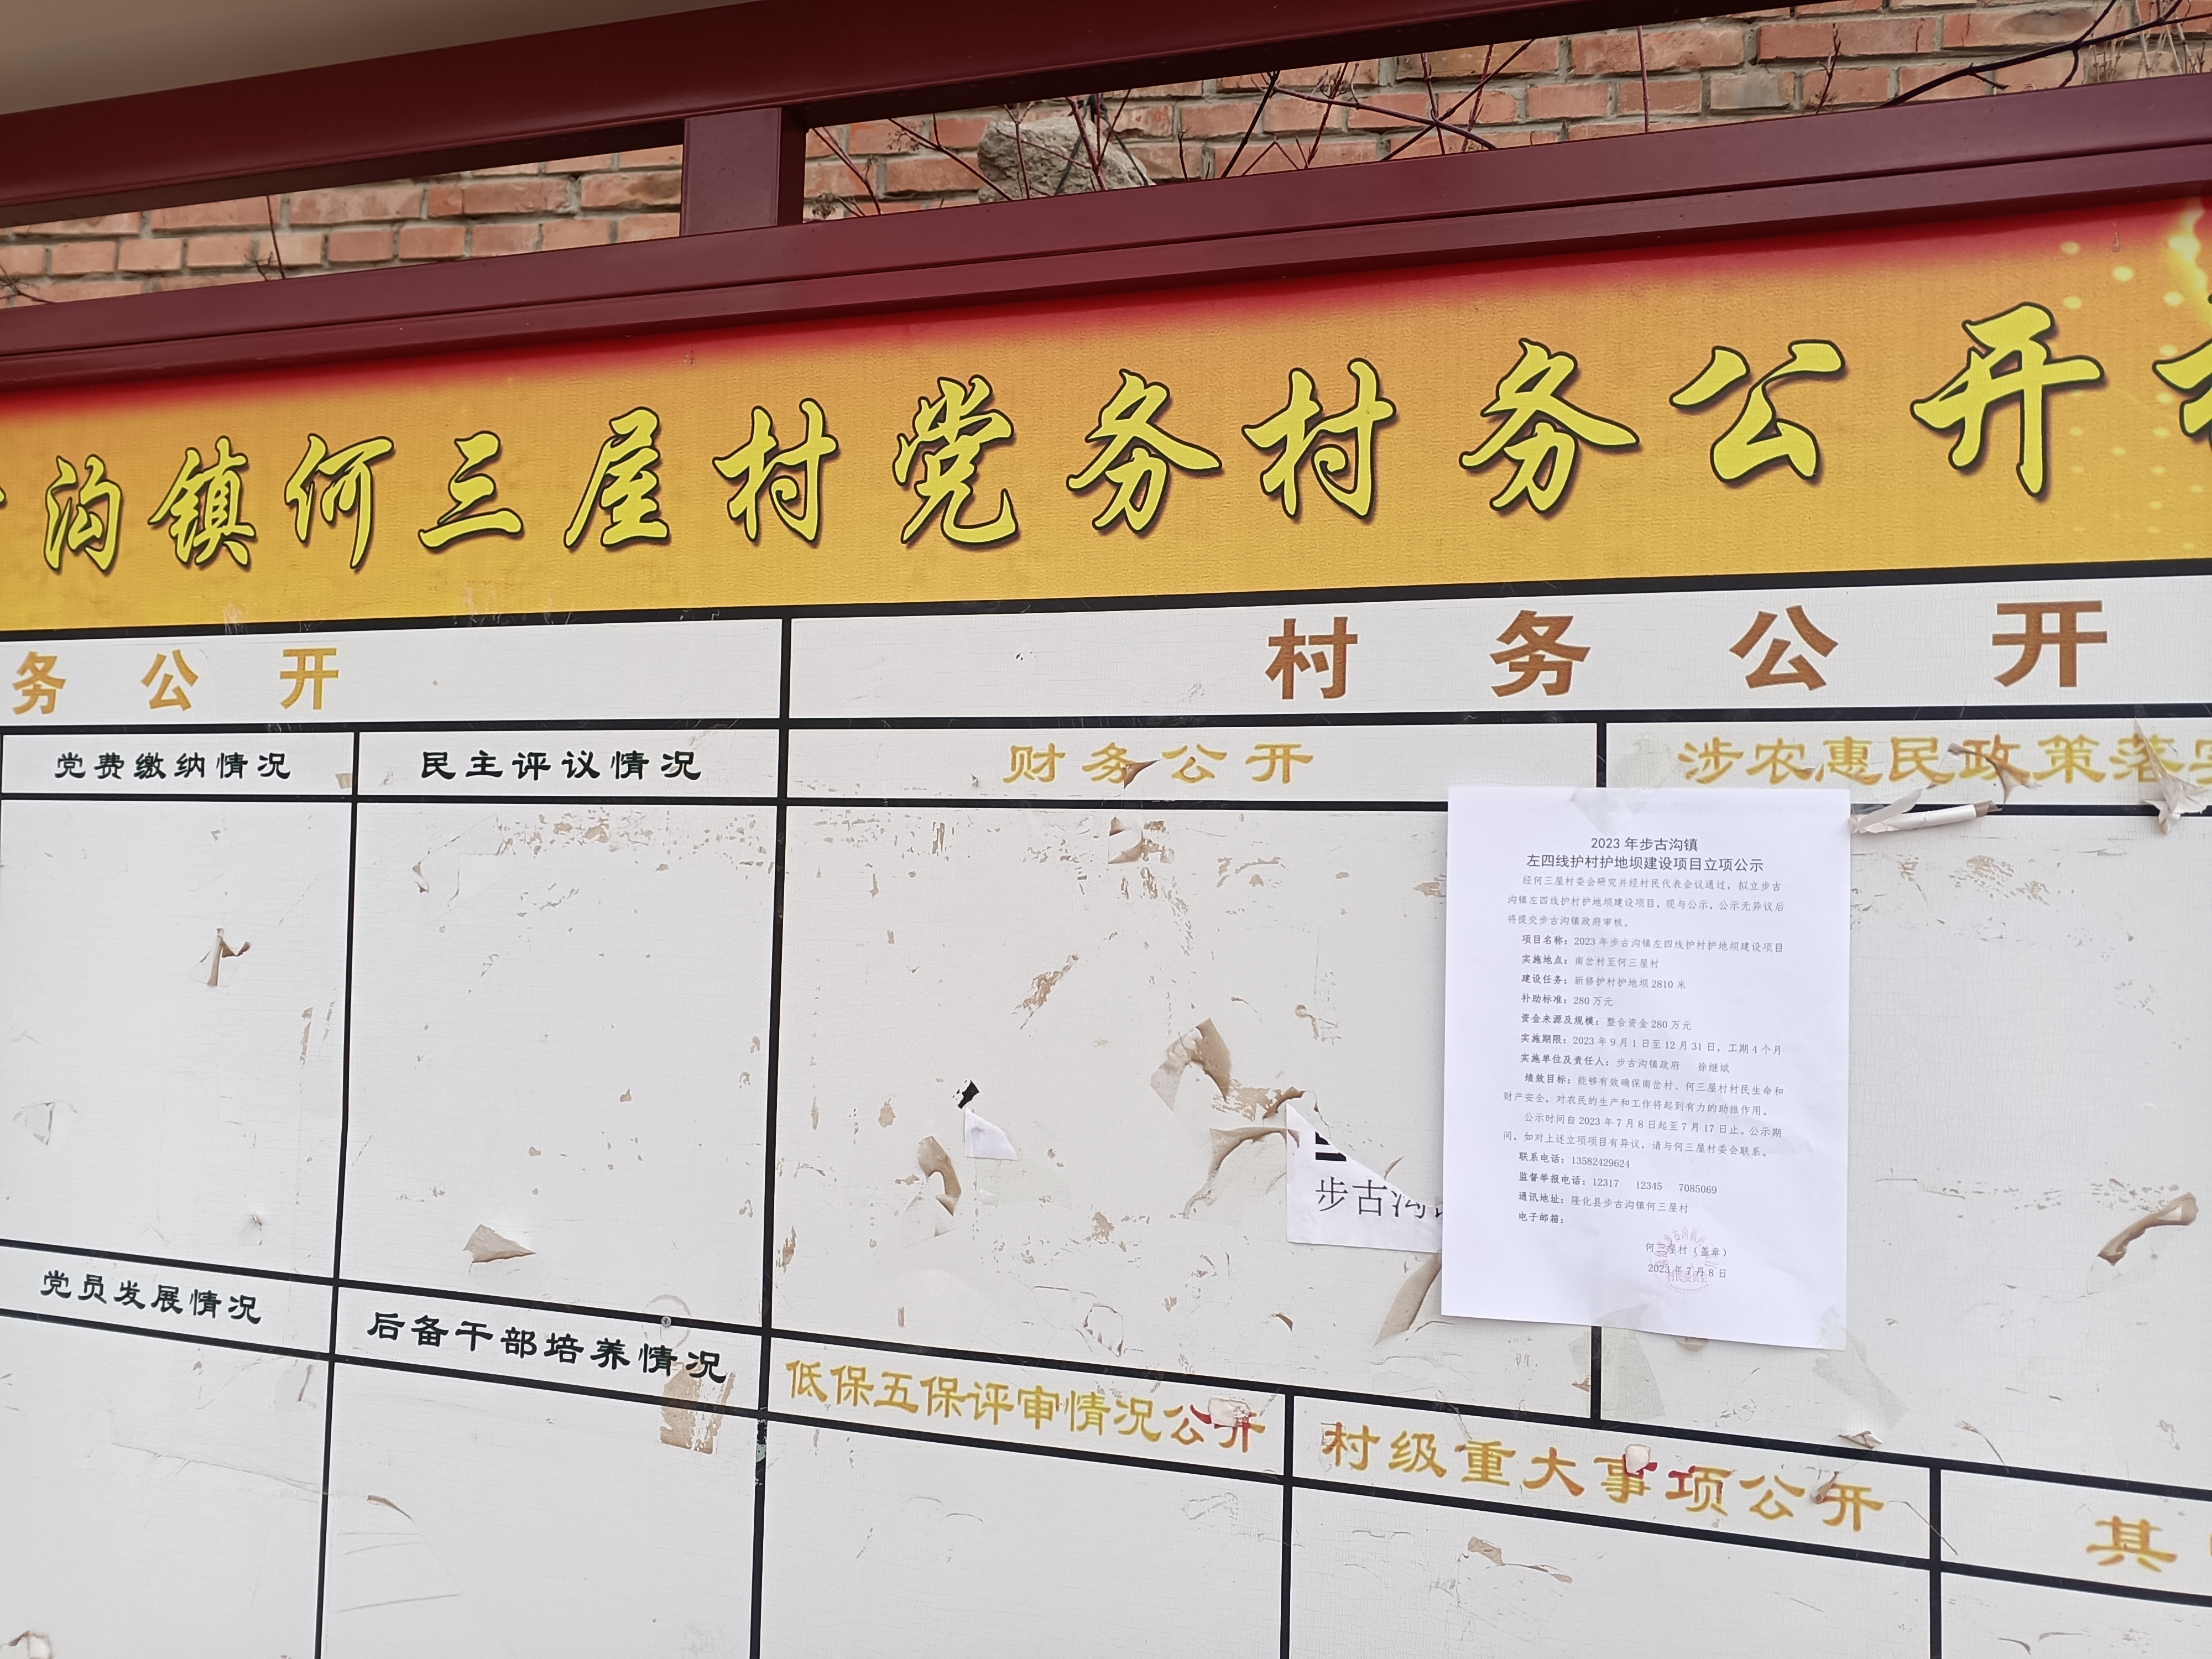 沟镇何三屋村党务村务公开
务公开
村务公开
党费缴纳情况
民主评议情况
财务公开
涉农惠民政策落
2023年步古沟镇
左四线护村护地坝建设项目立项公示
经何三屋村委会研究并经村民代表会议通过，拟立步古
沟镇左四线护村护地坝建设项目，现与公示，公示无异议后
将提交步古沟镇政府审核。
项目名称：2023年步古沟镇左四线护村护地坝建设项目
实施地点：南岔村至何三屋村
建设任务：新修护村护地坝2810米
补助标准：280万元
资金来源及规模：整合资金280万元
实施期限：2023年9月1日至12月31日，工期4个月
实施单位及责任人：步古沟镇政府 徐继斌
绩效目标：能够有效确保南岔村、何三屋村村民生命和
财产安全，对农民的生产和工作将起到有力的助推作用。
公示时间自2023年7月8日起至7月17日止。公示期
间，如对上述立项项目有异议，请与何三屋村委会联系。
联系电话：13582429624
监督举报电话：12317 12345 7085069
通讯地址：隆化县步古沟镇何三屋村
电子邮箱：
何三屋村（盖章）
2023年7月8日
村民委员会
步古沟
党员发展情况
后备干部培养情况
低保五保评审情况公开
村级重大事项公开
其